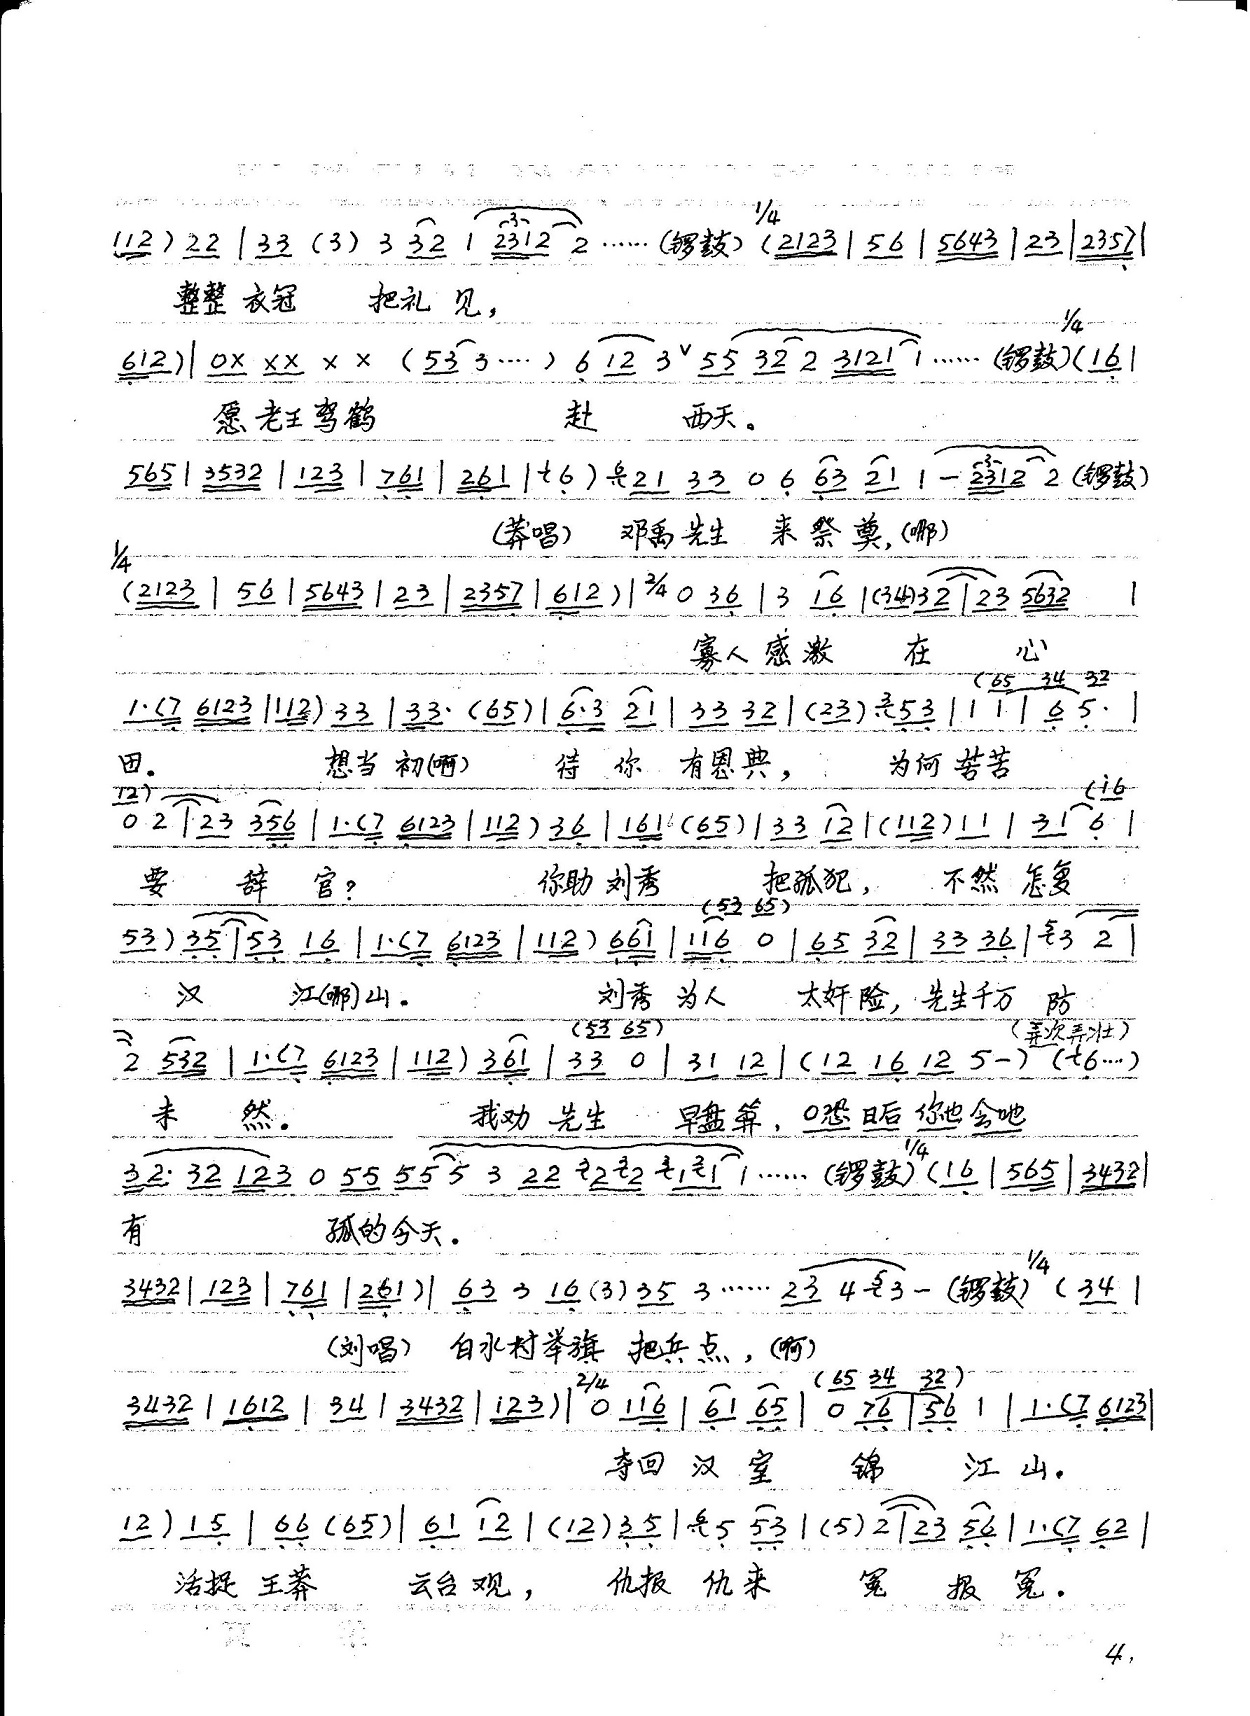 (112) 22 | 33 (3) 3 32 1 2312 2 …… (锣鼓) 1/4 (2123 | 56 | 5643 | 23 | 2357 |
整整 衣冠 把礼 见,
612) | 0X XX X X (53 3 ····) 6 12 3 ˅ 55 32 2 3121 1 …… (锣鼓) 1/4 (16 |
愿 老王 驾鹤 赴 西天。
565 | 3532 | 123 | 761 | 261 | 七6) 21 33 0 6 63 21 1 — 2312 2 (锣鼓)
(莽唱) 邓禹 先生 来 祭 奠, (哪)
1/4
(2123 | 56 | 5643 | 23 | 2357 | 612) | 2/4 0 36 | 3 16 | (34)32 | 23 5632 |
寡人 感激 在 心
(65 34 32
1·(7 6123 | 112) 33 | 33· (65) | 6·3 21 | 33 32 | (23) 53 | 1 1 | 6 5· |
田。 想当 初(啊) 待 你 有恩典, 为何 苦苦
12) (i6
0 2 | 23 356 | 1·(7 6123 | 112) 36 | 161 (65) | 33 12 | (112) 11 | 31 6 |
要 辞 官? 你助 刘秀 把孤犯, 不然 怎复
(53 65)
53) 35 | 53 16 | 1·(7 6123 | 112) 661 | 116 0 | 65 32 | 33 36 | 3 2 |
汉 江(哪)山. 刘秀 为人 太奸险, 先生千万 防
(53 65) (弄次弄壮)
2 532 | 1·(7 6123 | 112) 361 | 33 0 | 31 12 | (12 16 12 5—) (七6····)
未 然. 我劝 先生 早盘算, 0恐 日后 你也 会吔
32· 32 123 0 55 55 5 3 22 22 11 1 …… (锣鼓) 1/4 (16 | 565 | 3432 |
有 孤的今天.
3432 | 123 | 761 | 261) | 63 3 16 (3) 35 3 …… 23 4 3 — (锣鼓) 1/4 (34 |
(刘唱) 白水村举旗 把兵点, (啊)
(65 34 32)
3432 | 1612 | 34 | 3432 | 123) | 2/4 0 116 | 61 65 | 0 76 | 56 1 | 1·(7 6123 |
夺回 汉 室 锦 江 山.
12) 15 | 66 (65) | 61 12 | (12) 35 | 5 53 | (5) 2 | 23 56 | 1·(7 62 |
活捉 王莽 云台 观, 仇报 仇来 冤 报 冤.
4.